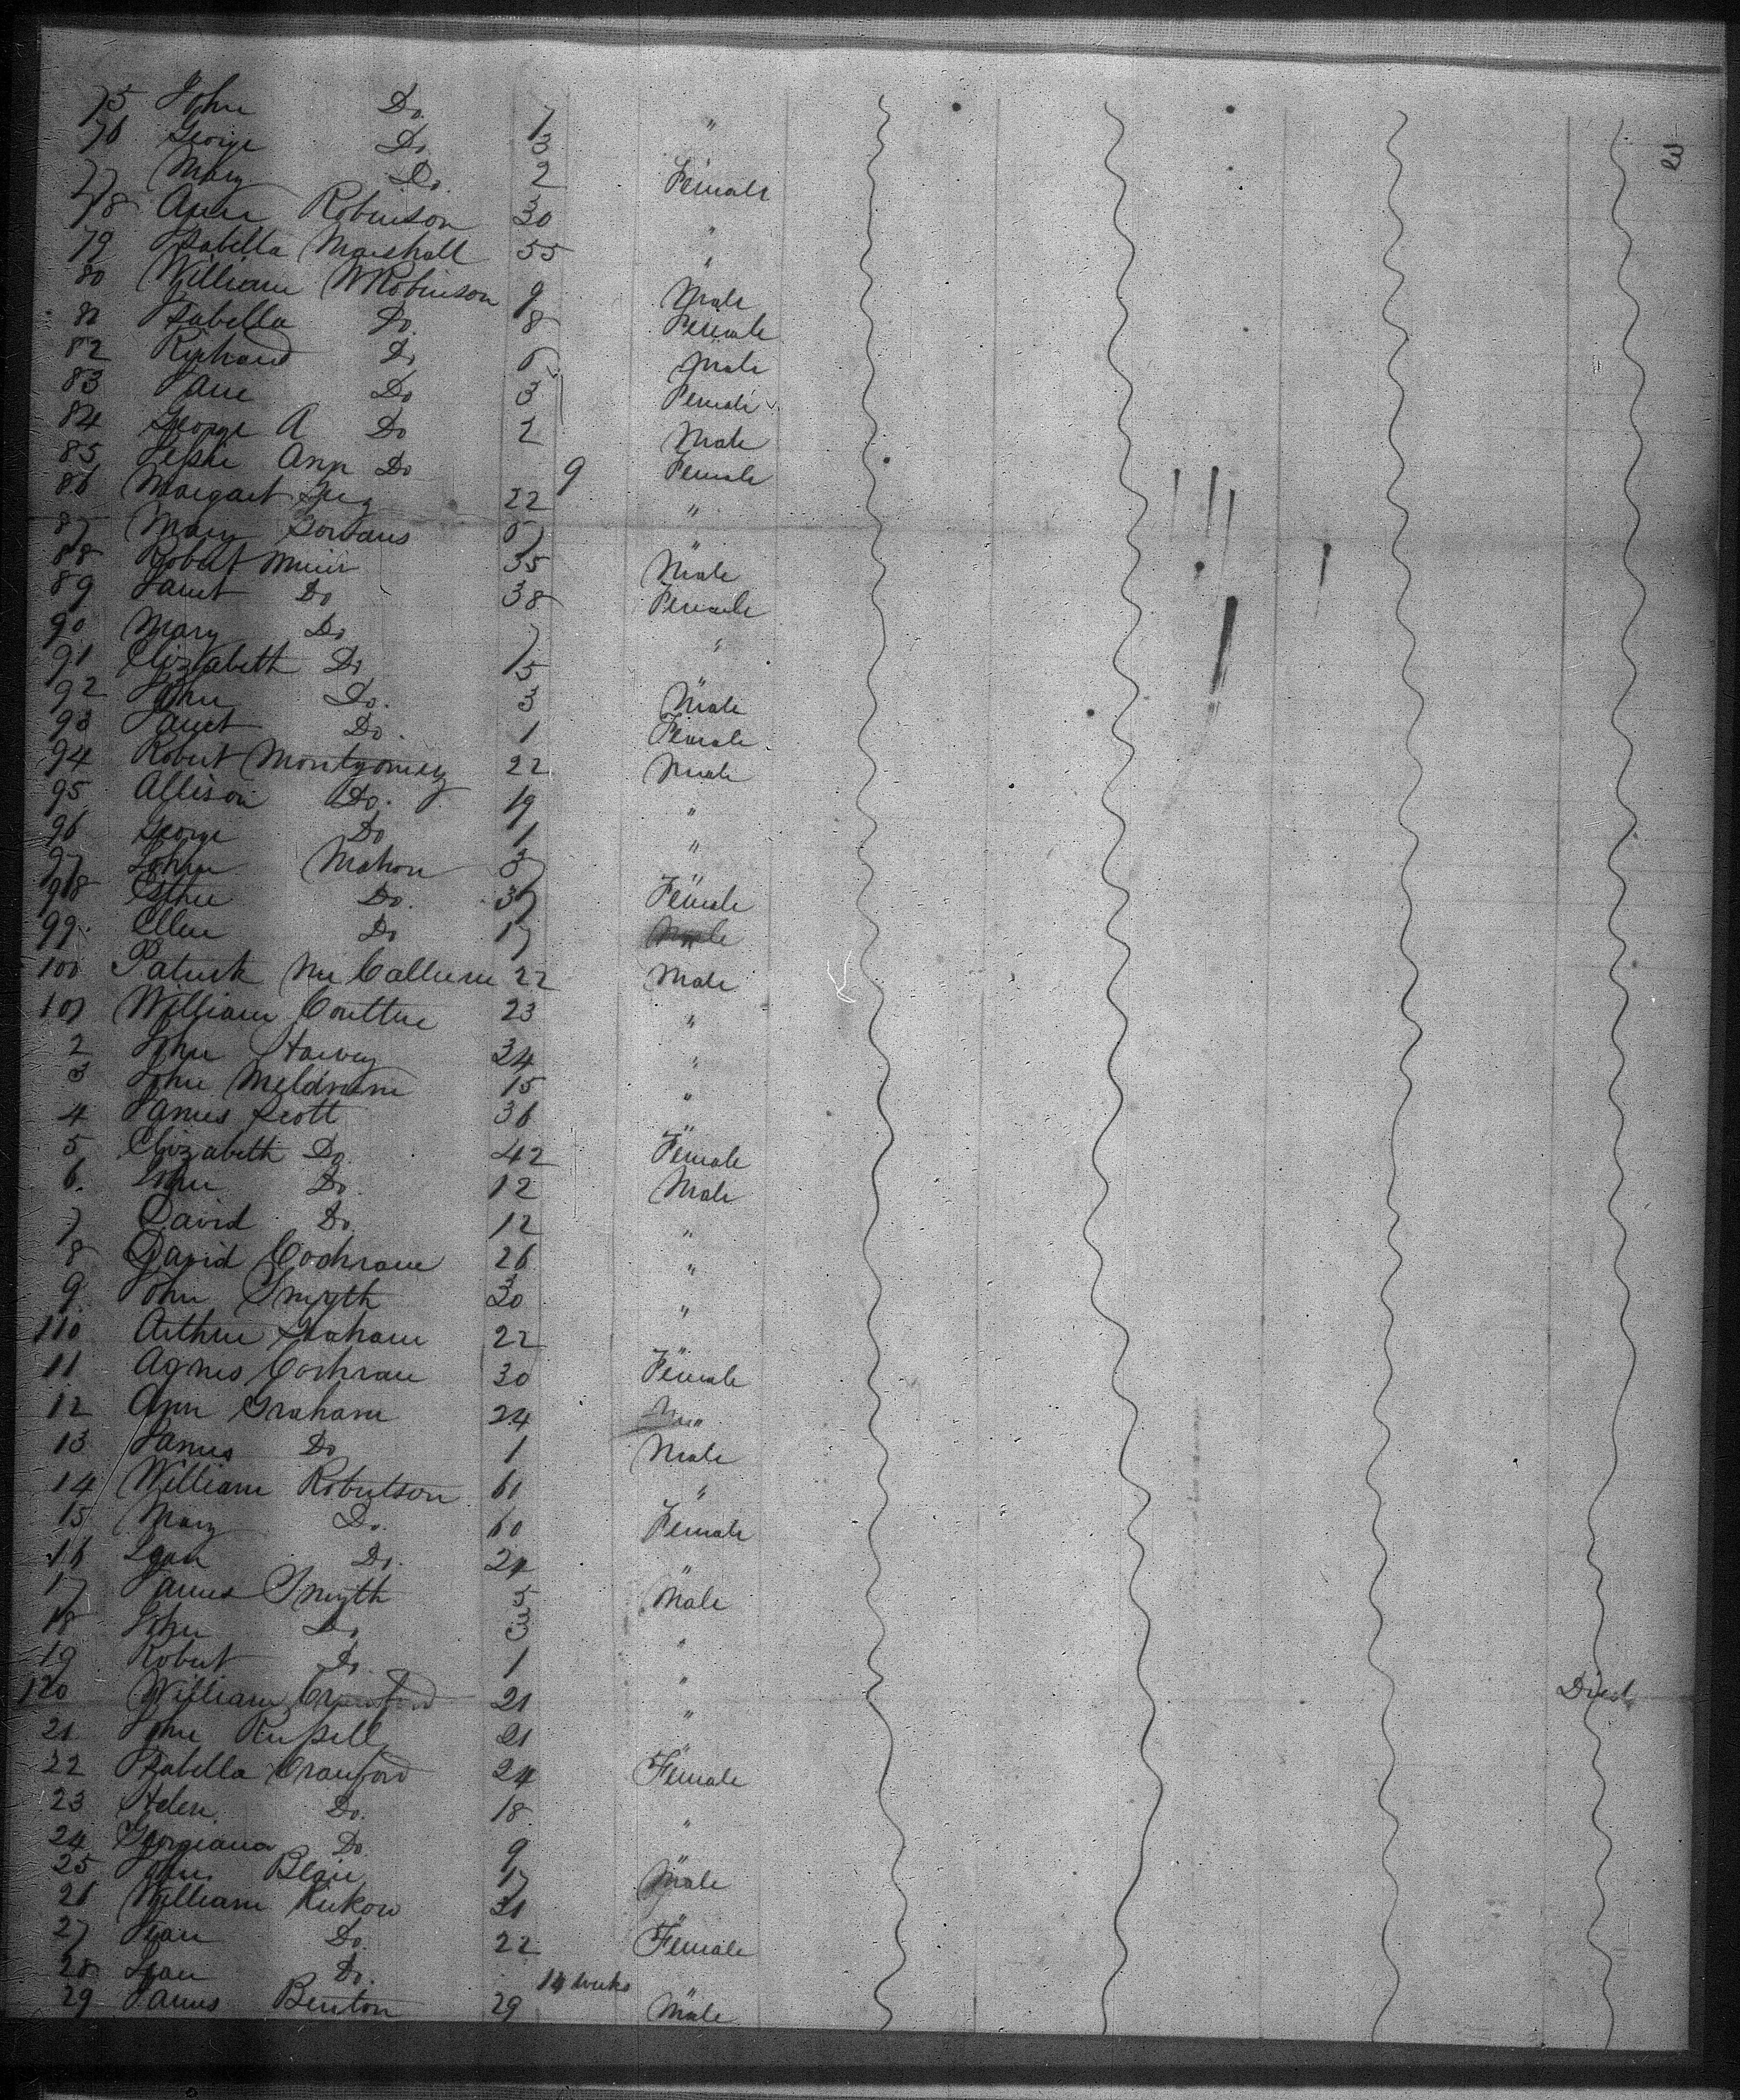 75 John Do. 7 "
76 George Do. 3
77 Mary Do. 2 Female
78 Ann Robinson 30 "
79 Isabella Marshall 55 "
80 William W Robinson 9 Male
81 Isabella Do. 8 Female
82 Richard Do 6 Male
83 Jane Do 3 Female
84 George A Do 2 Male
85 Jessie Ann Do 9 Female
86 Margaret 22 "
87 Mary 67 "
88 Robert Muir 35 Male
89 Janet Do 38 Female
90 Mary Do 7 "
91 Elizabeth Do 5
92 John Do. 3 Male
93 Janet Do. 1 Female
94 Robert Montgomery 22 Male
95 Allison Do. 19 "
96 George Do 1 "
97 John Mahon 37
98 Esther Do. 37 Female
99 Ellen Do 17
100 Patrick McCallum 22 Male
101 William 23 "
2 John Harvey 34 "
3 John Meldrum 15 "
4 James Scott 36 "
5 Elizabeth Do 42 Female
6. John Do. 12 Male
7 David Do. 12 "
8 David Cochrane 26 "
9 John Smyth 30 "
110 Arthur Graham 22 "
11 Agnes Cochrane 30 Female
12 Ann Graham 24 "
13 James Do 1 Male
14 William Robertson 61 "
15 Mary Do. 60 Female
16 Jean Do. 24 "
17 James Smyth 5 Male
18 John Do 3 "
19 Robert Do. 1 "
120 William Crawford 21 " Died
21 John Russell 21 "
22 Isabella Crauford 24 Female
23 Helen Do. 18 "
24 Georgiana Do 9 "
25 John Blair 17 Male
26 William 31 "
27 Jean Do. 22 Female
28 Jean Do. 14 weeks "
29 James Benton 29 Male